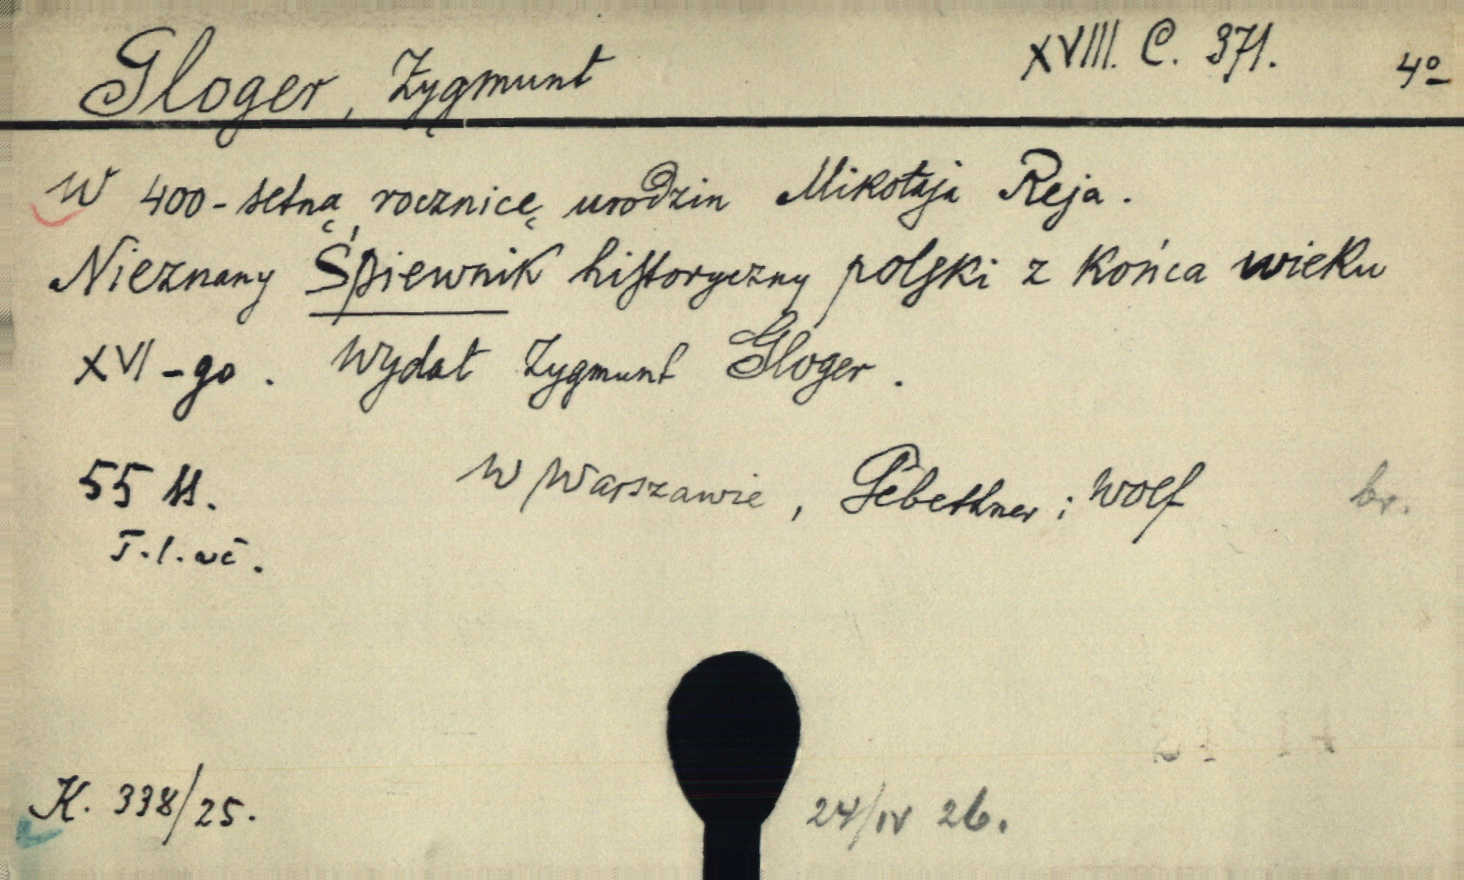 Gloger, Zygmunt XVIII. C. 371. 4º
W 400-setną rocznicę urodzin Mikołaja Reja.
Nieznany Śpiewnik historyczny polski z końca wieku
XVI-go. Wydał Zygmunt Gloger.
55 ss. W Warszawie, Gebethner i Wolf br.
K. 338/25. 24/IV 26.